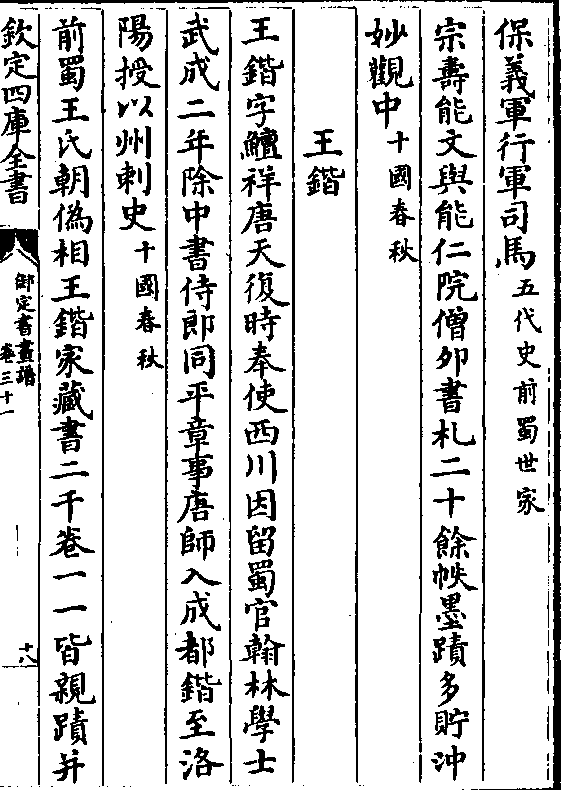 保義軍行軍司馬五代史前蜀世家
宗壽能文與能仁院僧卯書札二十餘帙墨蹟多貯沖
妙觀中十國春秋
王鍇
王鍇字鱣祥唐天復時奉使西川因留蜀官翰林學士
武成二年除中書侍郎同平章事唐師入成都鍇至洛
陽授以州刺史十國春秋
前蜀王氏朝偽相王鍇家藏書二千卷一一皆親蹟并
欽定四庫全書
御定書畫譜
卷三十一
十八